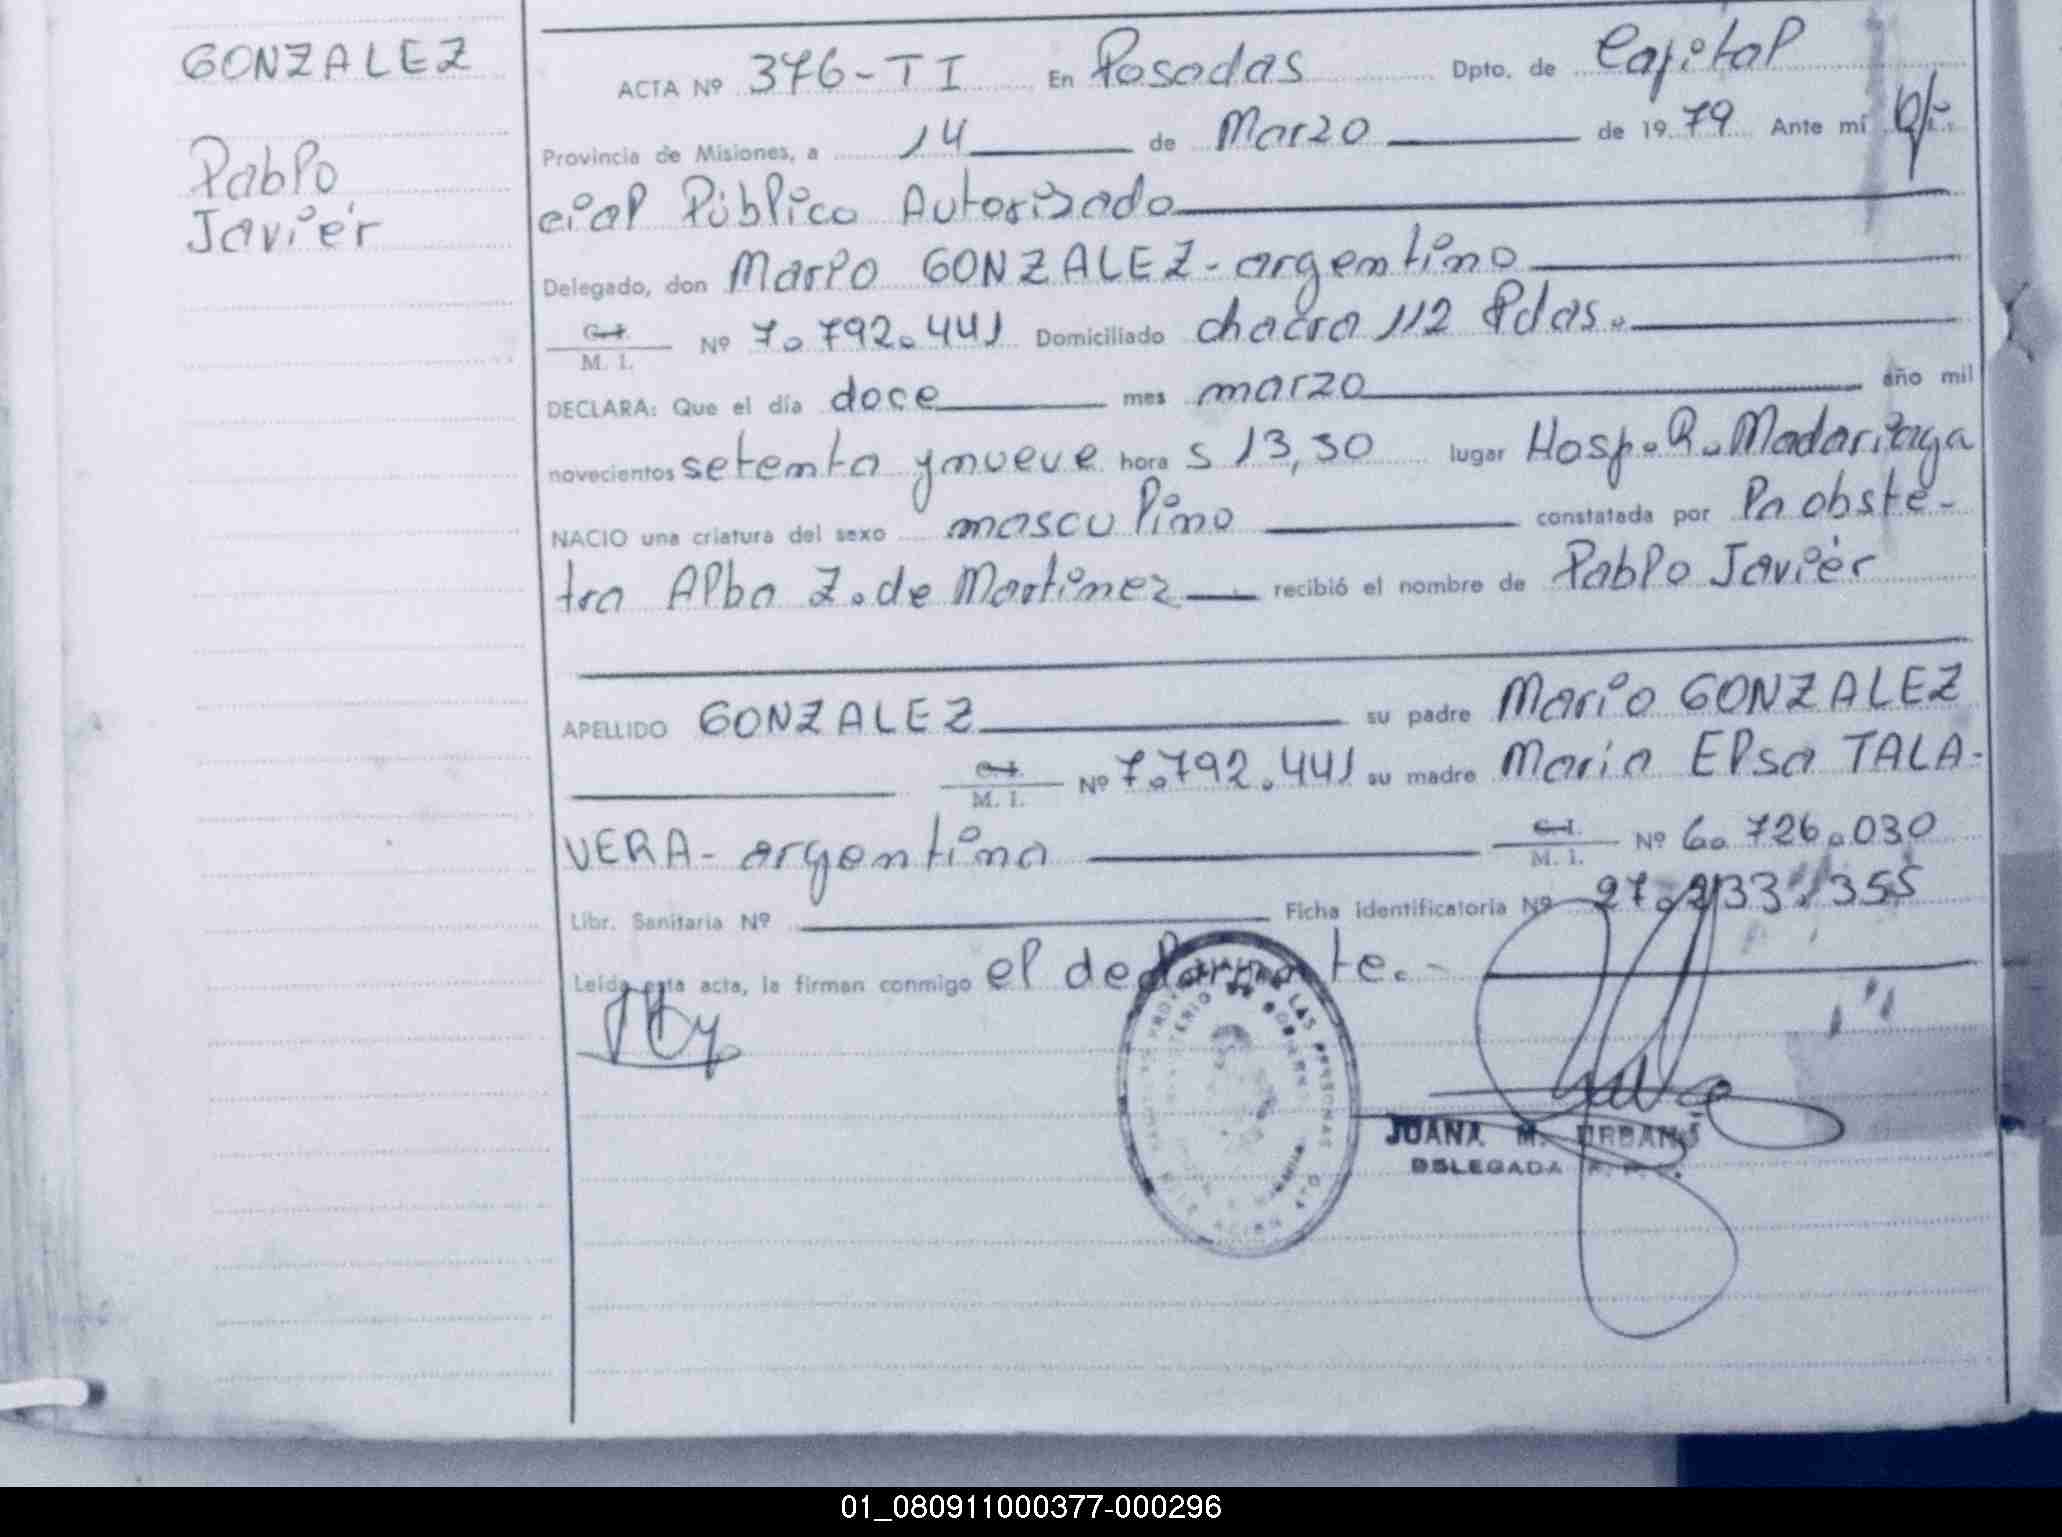 GONZALEZ
Pablo
Javier
ACTA Nº 376-TI En Posadas Dpto. de Capital
Provincia de Misiones, a 14 de Marzo de 1979 Ante mí Ofi-
cial Público Autorizado
Delegado, don Mario GONZALEZ - argentino
C.I.
M. I. Nº 7.792.441 Domiciliado chacra 112 Pdas.
DECLARA: Que el día doce mes marzo año mil
novecientos setenta y nueve hora s 13,30 lugar Hosp. R. Madariaga
NACIO una criatura del sexo masculino constatada por la obste-
tra Alba Z. de Martinez recibió el nombre de Pablo Javier
APELLIDO GONZALEZ su padre Mario GONZALEZ
C.I.
M. I. Nº 7.792.441 su madre Maria Elsa TALA-
VERA - argentina
C.I.
M. I. Nº 6.726.030
Libr. Sanitaria Nº Ficha identificatoria Nº 27.233.355
Leída esta acta, la firman conmigo el declarante.-
LAS PERSONAS
JUANA M. URBANO
DELEGADA
01_080911000377-000296